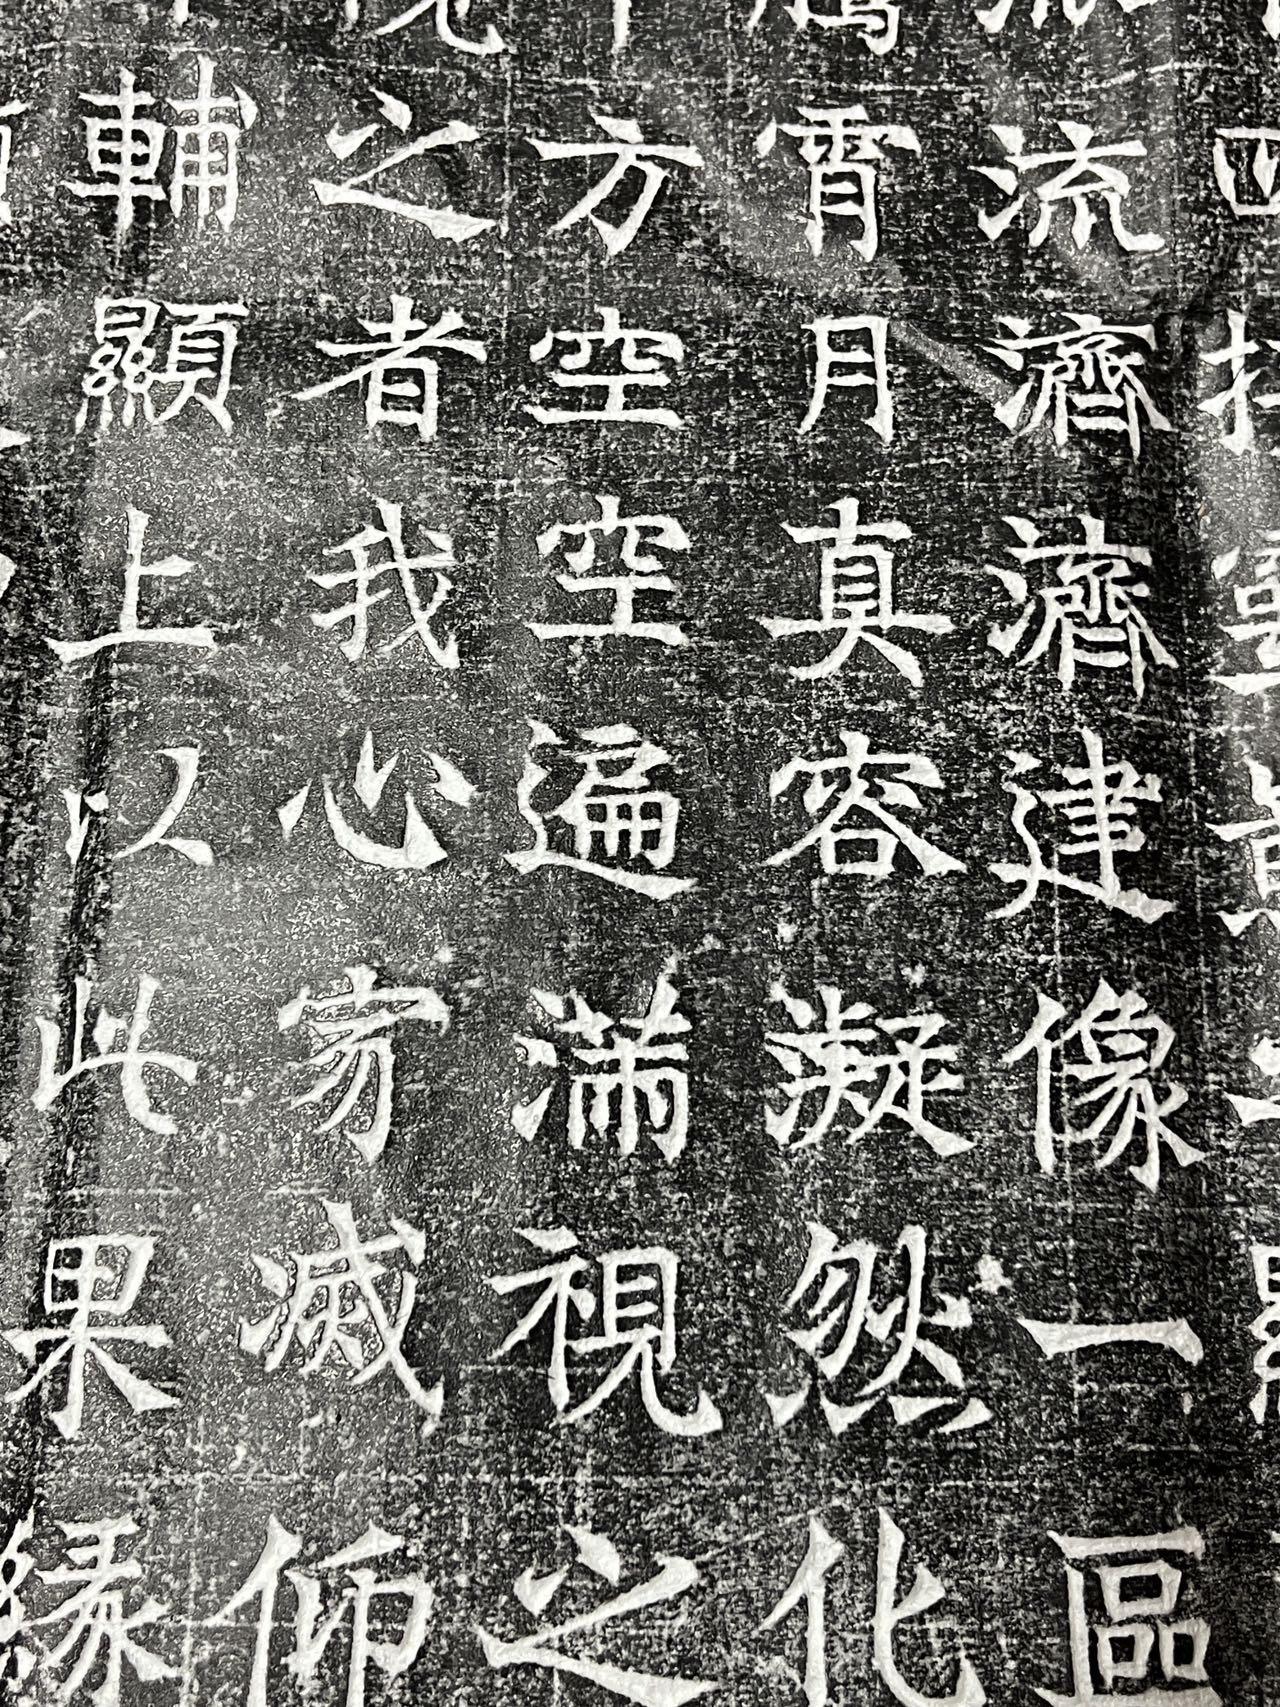 流濟濟建像一區
霄月真容凝然化
方空空遍滿視之
之者我心寂滅仰
輔顯上以此果緣